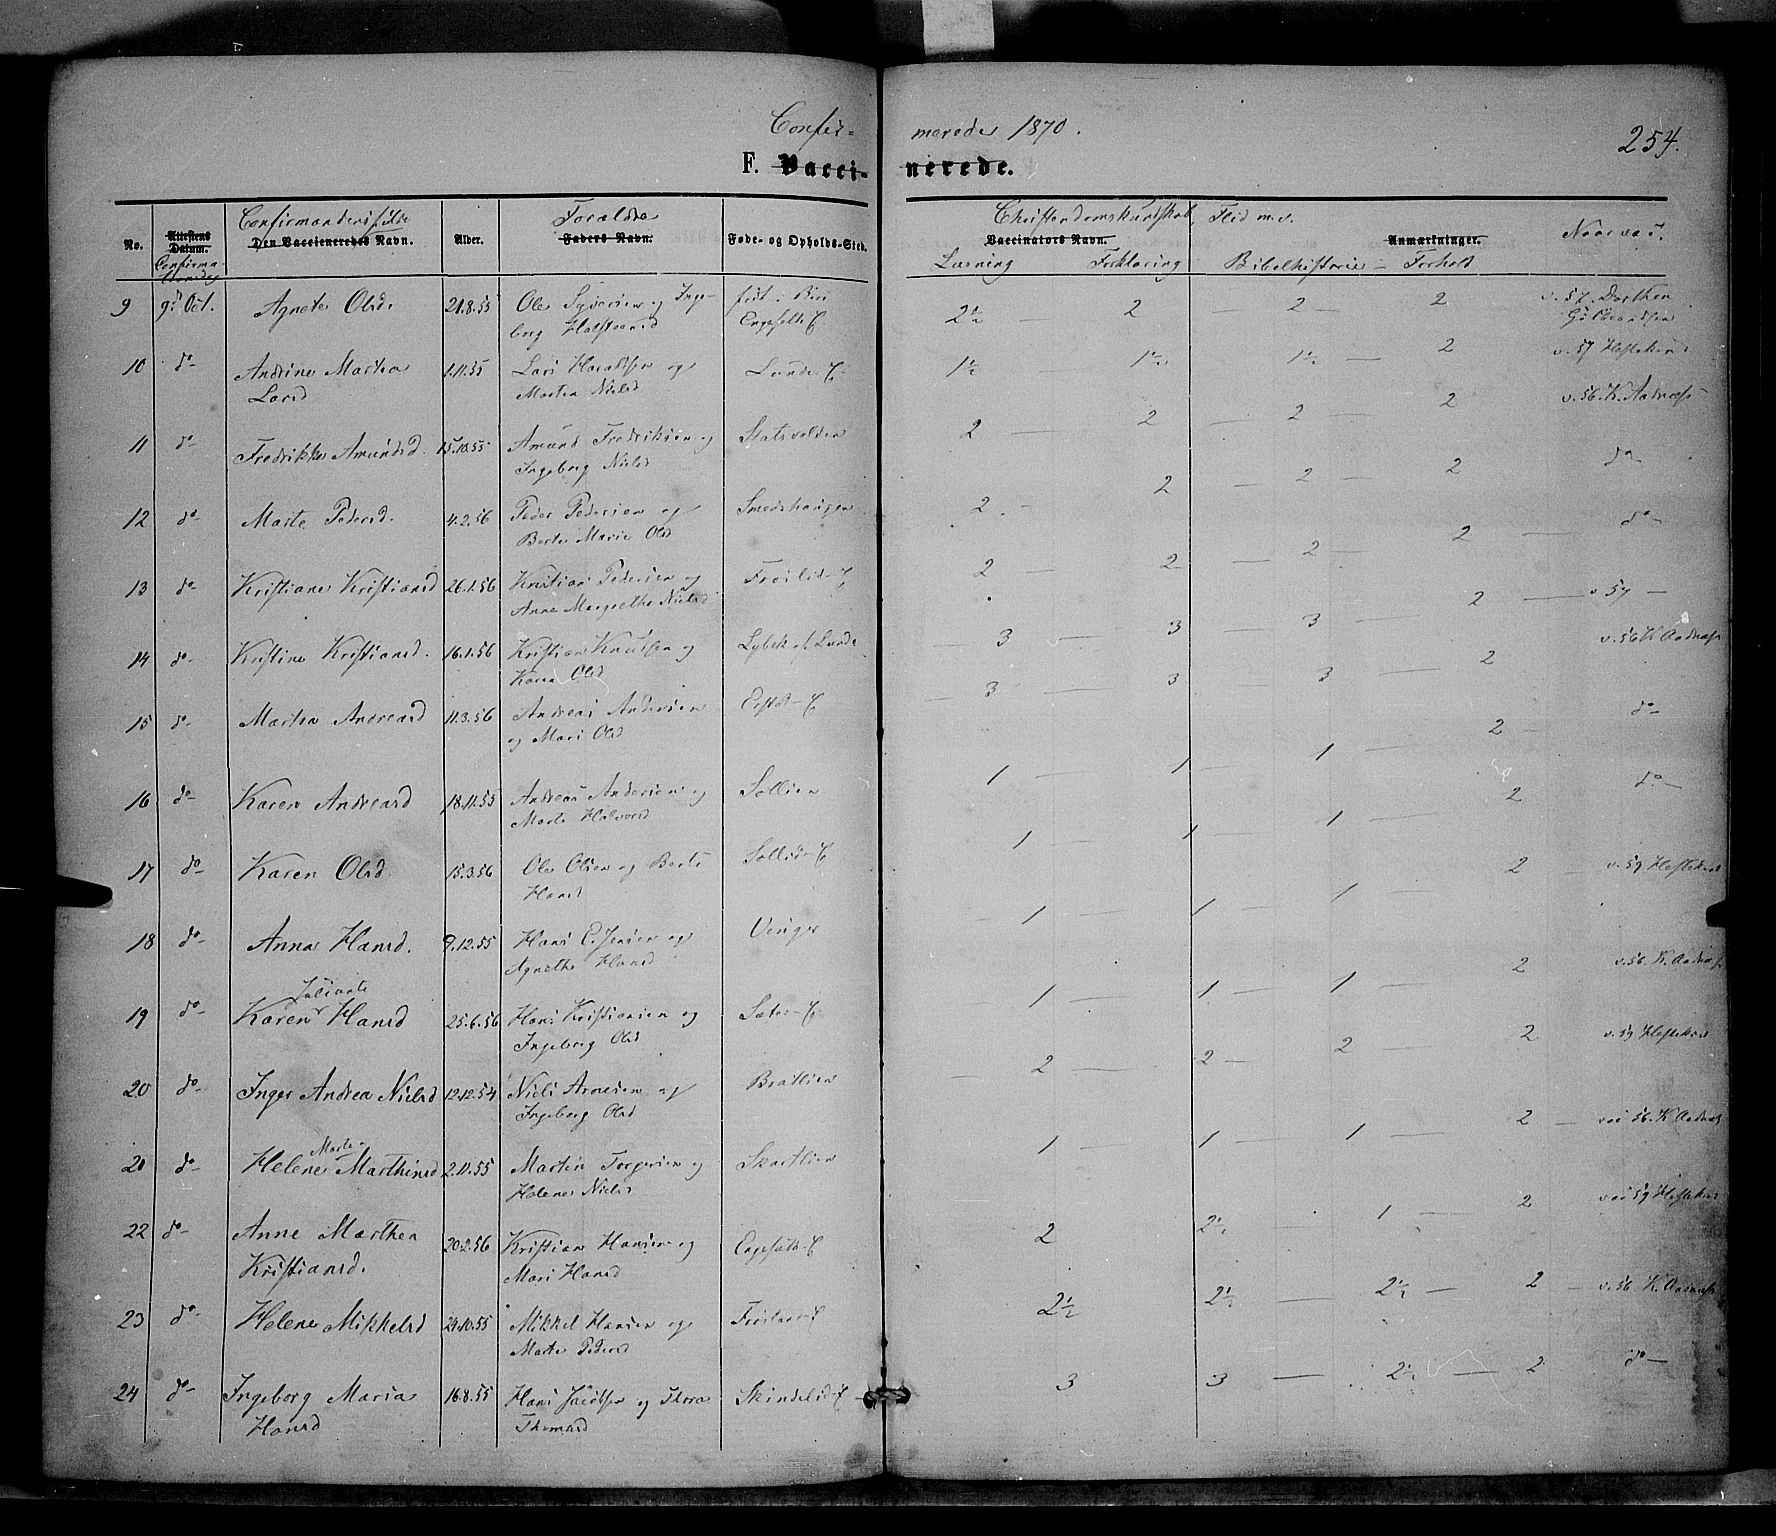 Confir- merede 1870.
254.
F. Vacci- nerede.
No.
Attestens Datum.
Confirma-
tionsdag
Confirmandens fulde
Den Vaccineredes Navn.
Alder.
Forældre
Faders Navn.
Føde- og Opholds-Sted.
Christendomskundskab, Flid m.v.
Vaccinators Navn.
Anmærkninger.
Læsning Forklaring Bibelhistorie Forhold
Naar vac.
9 9d Oct. Agnete Olsd. 21.8.55 Ole Syversen og Inge- født i Biri 2½ 2 2 2 v. 57. Dorthea
borg Engesetth E. Gulbrandsen
10 do Andrine Marthea 1.11.55 Lars Haraldsen og Lunde E. 1½ 1½ 1½ 2 v. 57
Larsd Marthea Nielsd
11 do Fredrikke Amundsd. 15.10.55 Amund Fredriksen og Statsvolden 2 2 2 2 v. 56. K. Aadnæss
Ingeborg Nielsd
12 do Marte Pedersd. 4.2.56 Peder Pedersen og Smedshaugen 2 2 2 2 do
Berte Marie Olsd
13 do Kristiane Kristiansd 26.1.56 Kristian Pedersen og 2 2 2 2 do
Anne Margrethe Nielsd
14 do Kristine Kristiansd. 16.1.56 Kristian Knudsen og Lybek u. Lunde 3 3 3 2 v 57
Karen Olsd
15 do Marthea Andreasd 11.3.56 Andreas Andersen 3 3 3 2 v. 56 K Aadnæss
og Mari Olsd
16 do Karen Andreasd 18.11.55 Andreas Andersen og Sollien 1 1 1 2 do
Marte Halvorsd
17 do Karen Olsd 15.3.56 Ole Olsen og Berte Sollid E 1 1 1 2 do
Hansd
18 do Anna Hansd. 9.12.55 Hans E. Jensen og 1 1 1 2 v. 59
Agnethe Hansd
19 do Karen Hansd 25.6.56 Hans Kristiansen og Sæter E. 1 1 1 2 v. 56. K. Aadnæss
Ingeborg Olsd
20 do Inger Andrea Nielsd 12.12.54 Niels Arnesen og Bratlien 2 2 2 2 v. 59
Ingeborg Olsd
Marte
21 do Helene Marthinsd 2.11.55 Martin Torgersen og Skartlien 1 1 1 2 vac 56. K Aadnæss
Helene Nielsd
22 do Anne Marthea 20.2.56 Kristian Hansen og 2 2½ 1 2 vac 59
Kristiansd. Mari Hansd
23 do Helene Mikkelsd 29.10.55 Mikkel Hansen og 2½ 2½ 2½ 2 v. 56 K. Aadnæss
Marte Pedersd
24 do Ingeborg Maria 16.8.55 Hans Jacobsen og Thora Skindelid E 3 3 2½ 2 do
Hansd Thomasd